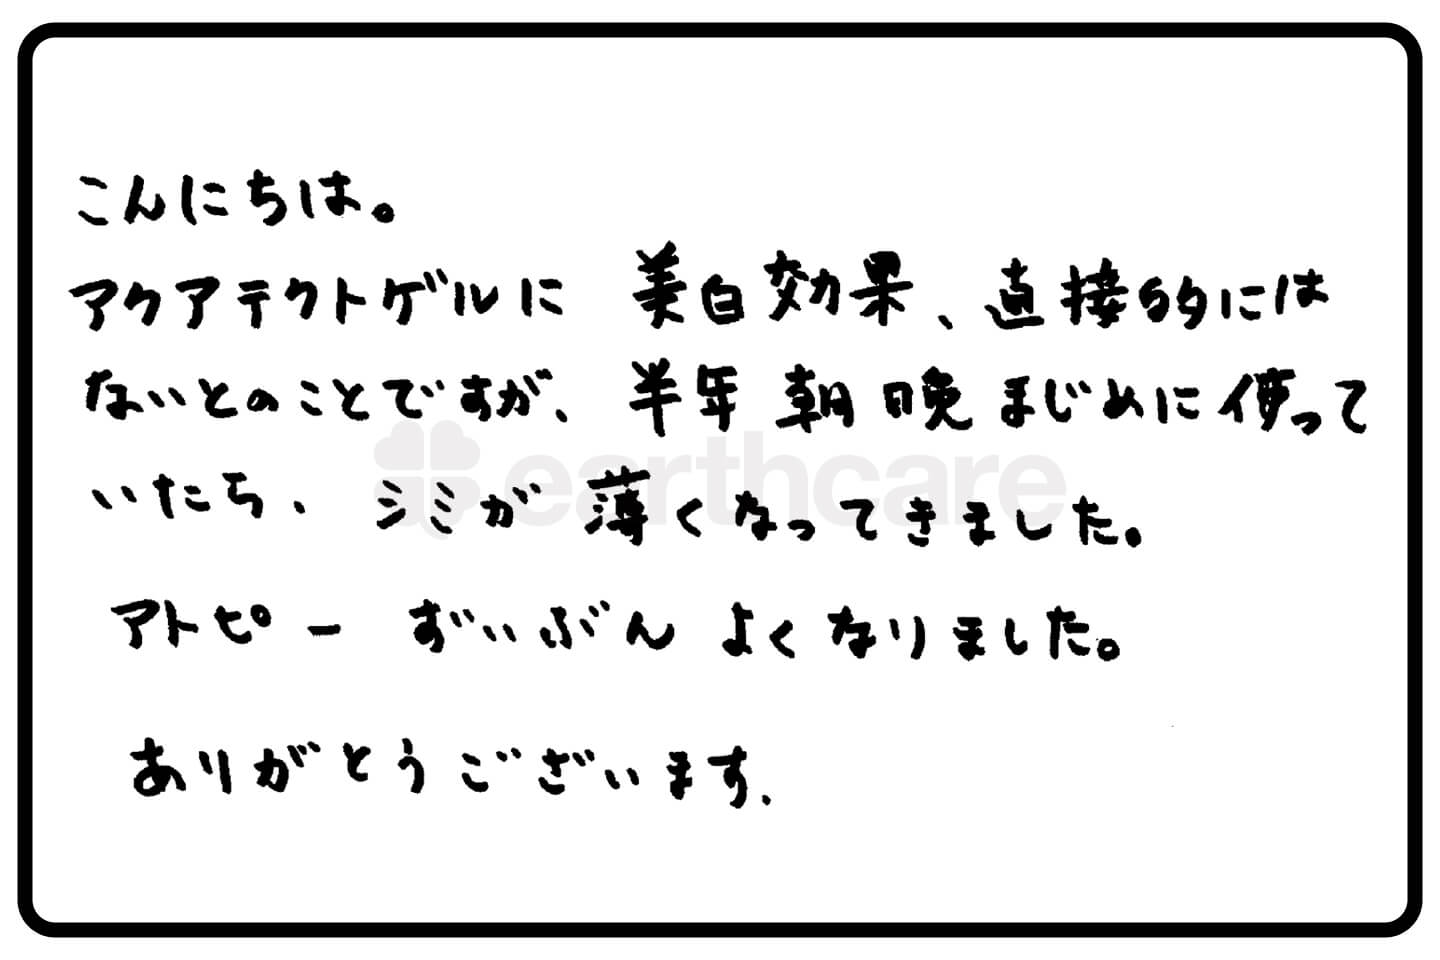 こんにちは。
アクアテクトゲルに 美白効果、直接的には
ないとのことですが、半年 朝晩まじめに使って
いたら、シミが薄くなってきました。
earthcare
アトピー ずいぶん よくなりました。
ありがとうございます.